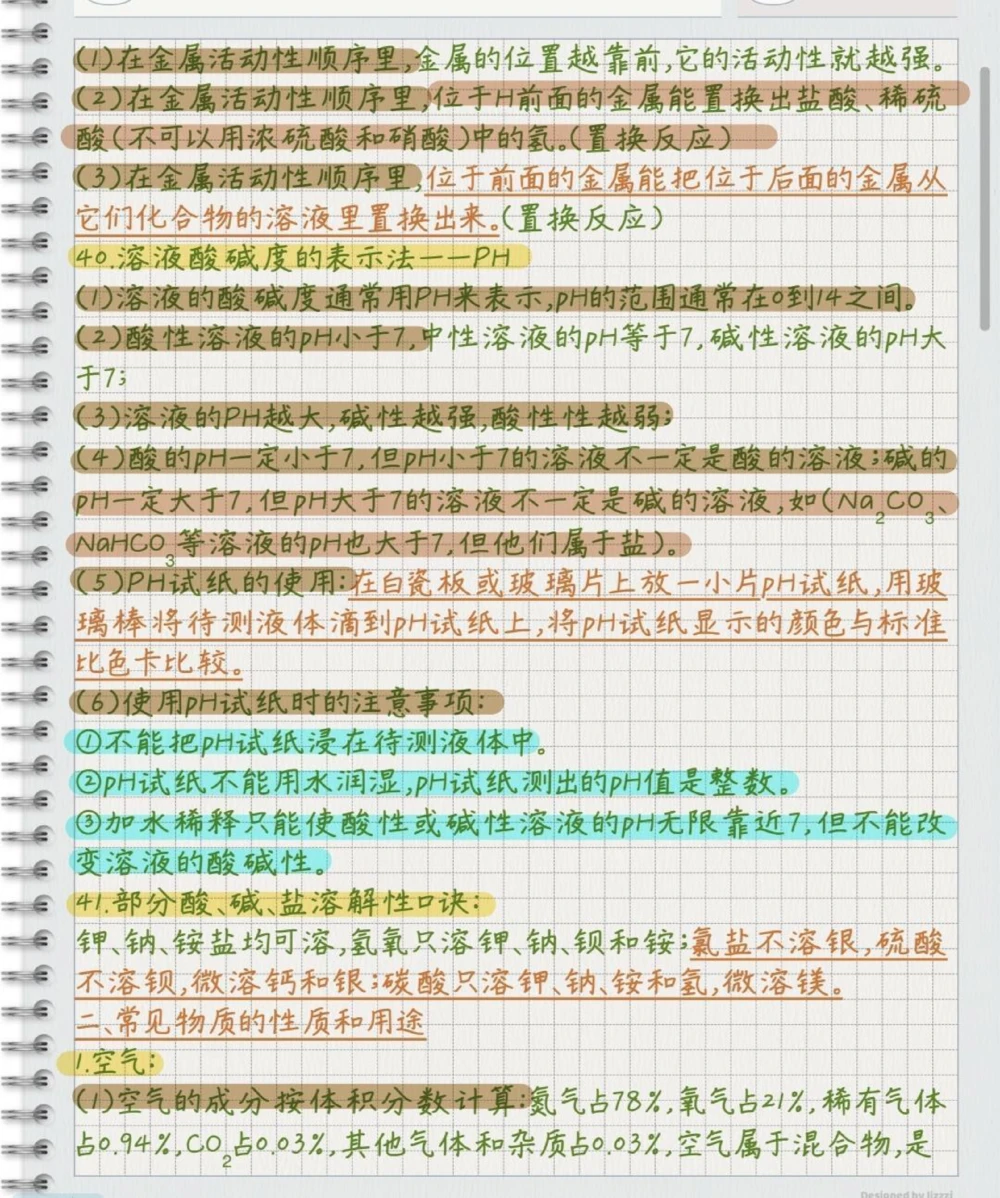 (1)在金属活动性顺序里,金属的位置越靠前,它的活动性就越强。
(2)在金属活动性顺序里,位于H前面的金属能置换出盐酸、稀硫
酸(不可以用浓硫酸和硝酸)中的氢。(置换反应)
(3)在金属活动性顺序里,位于前面的金属能把位于后面的金属从
它们化合物的溶液里置换出来。(置换反应)
40.溶液酸碱度的表示法——PH
(1)溶液的酸碱度通常用PH来表示,pH的范围通常在0到14之间。
(2)酸性溶液的pH小于7,中性溶液的pH等于7,碱性溶液的pH大
于7;
(3)溶液的PH越大,碱性越强,酸性性越弱;
(4)酸的pH一定小于7,但pH小于7的溶液不一定是酸的溶液;碱的
pH一定大于7,但pH大于7的溶液不一定是碱的溶液,如(Na₂CO₃、
NaHCO₃等溶液的pH也大于7,但他们属于盐)。
(5)PH试纸的使用:在白瓷板或玻璃片上放一小片pH试纸,用玻
璃棒将待测液体滴到pH试纸上,将pH试纸显示的颜色与标准
比色卡比较。
(6)使用pH试纸时的注意事项:
①不能把pH试纸浸在待测液体中。
②pH试纸不能用水润湿,pH试纸测出的pH值是整数。
③加水稀释只能使酸性或碱性溶液的pH无限靠近7,但不能改
变溶液的酸碱性。
41.部分酸、碱、盐溶解性口诀:
钾、钠、铵盐均可溶,氢氧只溶钾、钠、钡和铵;氯盐不溶银,硫酸
不溶钡,微溶钙和银;碳酸只溶钾、钠、铵和氢,微溶镁。
二、常见物质的性质和用途
1.空气:
(1)空气的成分按体积分数计算:氮气占78%,氧气占21%,稀有气体
占0.94%,CO₂占0.03%,其他气体和杂质占0.03%,空气属于混合物,是
Designed by lizzzi